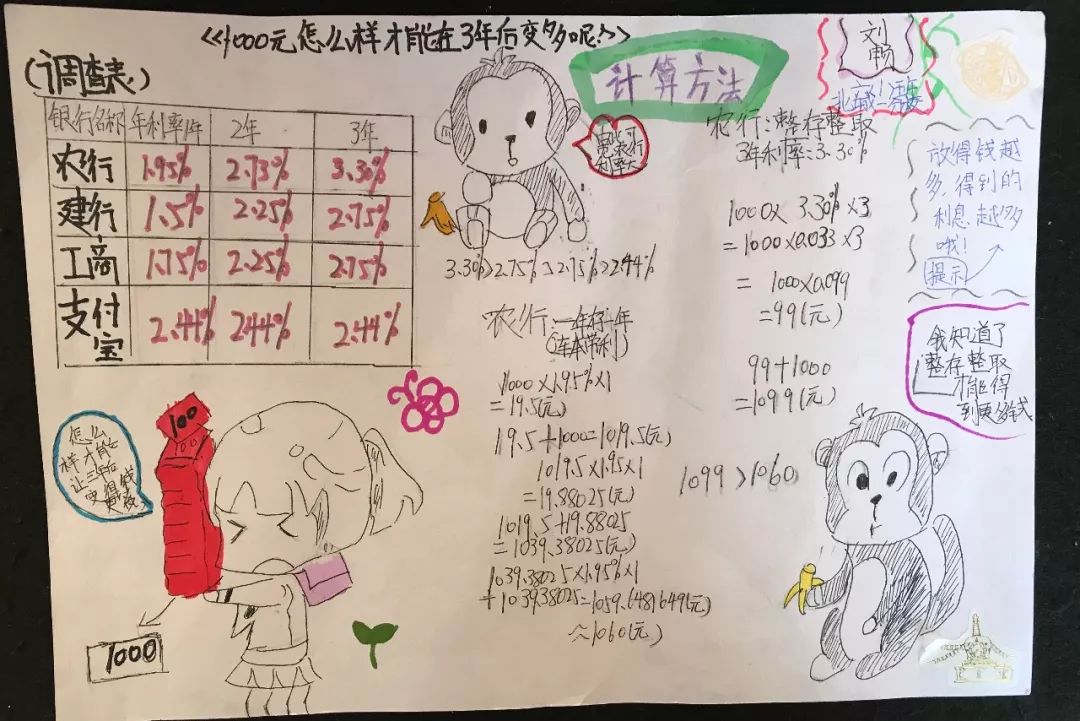 《1000元怎么样才能在3年后变多呢?》
(调查表)
银行名称 年利率1年 2年 3年
农行 1.95% 2.73% 3.30%
建行 1.5% 2.25% 2.75%
工商 1.75% 2.25% 2.75%
支付宝 2.44% 2.44% 2.44%
怎么
样才能
让三年后
变得钱
100
100
1000
3.30%>2.75%≥2.75%>2.44%
农行:一年存一年
(连本带利)
1000×1.95%×1
=19.5(元)
19.5+1000=1019.5(元)
1019.5×1.95×1
=19.88025(元)
1019.5+19.88025
=1039.38025(元)
1039.38025×1.95%×1
+1039.38025=1059.6481649(元)
≈1060(元)
计算方法
农行:整存整取
3年利率:3.30%
1000×3.30%×3
=1000×0.033×3
=1000×0.099
=99(元)
99+1000
=1099(元)
1099>1060
刘
畅
放得钱越
多,得到的
利息越多
哦!
提示
我知道了
整存整取
才能得
到更多钱